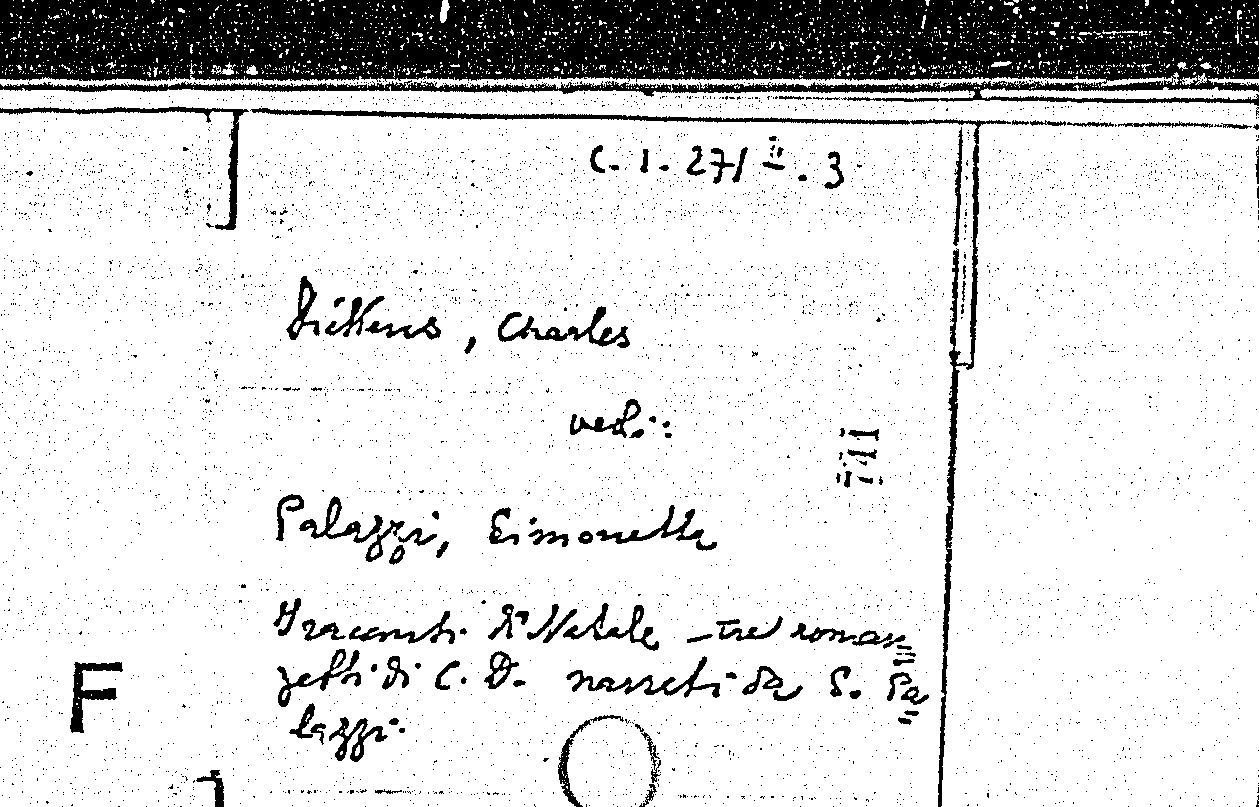 C. 1. 271 II. 3
Dickens, Charles
vedi:
741
Palazzi, Simonetta
I racconti di Natale - Tre roman=
zetti di C. D. narrati da S. Pa=
lazzi.
F